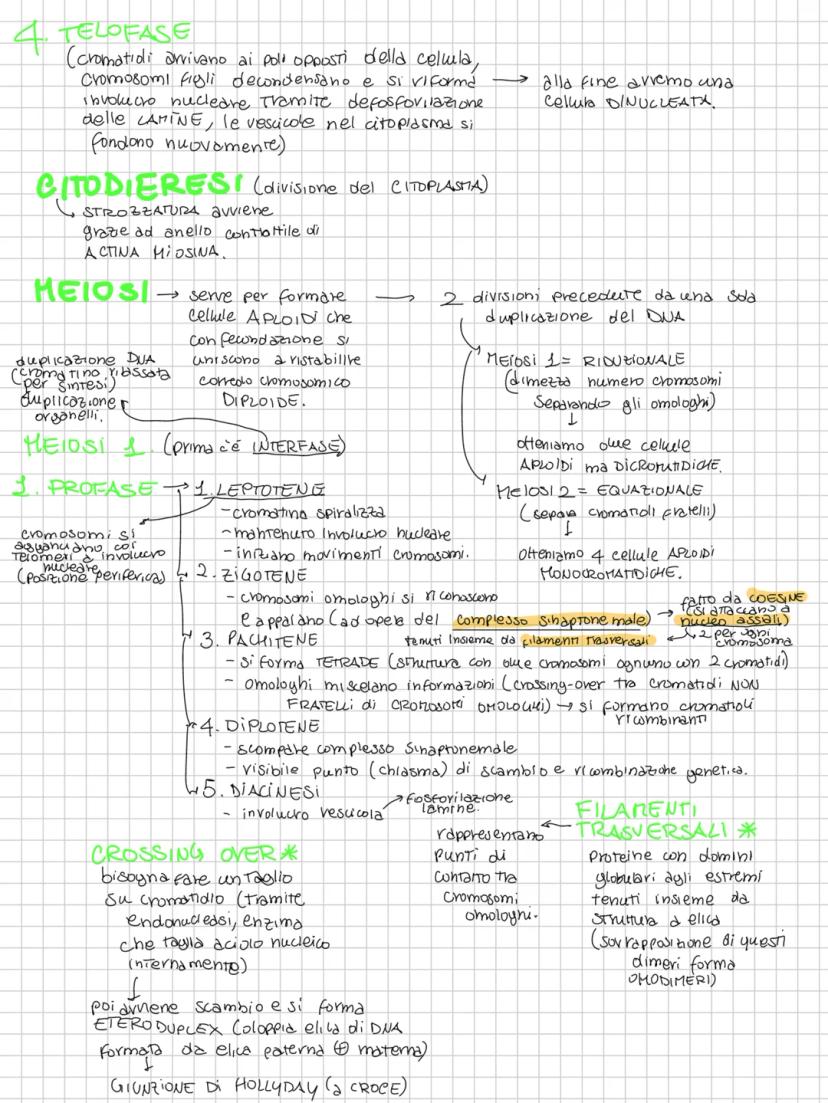 4. TELOFASE
(cromatidi arrivano ai poli opposti della cellula,
cromosomi figli decondensano e si riforma
involucro nucleare tramite defosforilazione
delle LAMINE, le vescicole nel citoplasma si
fondono nuovamente)
→ alla fine avremo una
cellula DINUCLEATA.
CITODIERESI (divisione del CITOPLASMA)
↳ STROZZATURA avviene
graze ad anello contrattile di
ACTINA MIOSINA.
MEIOSI → serve per formare
cellule APLOIDI che
con fecondazione si
uniscono a ristabilire
corredo cromosomico
DIPLOIDE.
→ 2 divisioni precedute da una sola
duplicazione del DNA
MEIOSI 1 = RIDUZIONALE
(dimezza numero cromosomi
separando gli omologhi)
↓
otteniamo due cellule
APLOIDI ma DICROMATIDICHE.
MEIOSI 2 = EQUAZIONALE
(separa cromatidi fratelli)
↓
Otteniamo 4 cellule APLOIDI
MONOCROMATIDICHE.
duplicazione DNA
(cromatino rilassata
per sintesi)
duplicazione
organelli.
MEIOSI 1 (prima c'è INTERFASE)
1. PROFASE → 1. LEPTOTENE
- cromatina spiralizza
- mantenuto involucro nucleare
- iniziano movimenti cromosomi.
cromosomi si
agganciano coi
telomeri a involucro
nucleare
(posizione periferica)
2. ZIGOTENE
- cromosomi omologhi si riconoscono
e appaiano (ad opera del complesso sinaptonemale) → fatto da COESINE
(si attaccano a
nucleo assali)
↳ 2 per ogni
cromosoma
tenuti insieme da filamenti trasversali
3. PACHITENE
- si forma TETRADE (struttura con due cromosomi ognuno con 2 cromatidi)
- omologhi miscelano informazioni (crossing-over tra cromatidi NON
FRATELLI di CROMOSOMI OMOLOGHI) → si formano cromatidi
ricombinanti
4. DIPLOTENE
- scompare complesso sinaptonemale
- visibile punto (chiasma) di scambio e ricombinazione genetica.
5. DIACINESI
- involucro vescicola → fosforilazione
lamine.
CROSSING OVER *
bisogna fare un taglio
su cromatidio (tramite
endonucleasi, enzima
che taglia acido nucleico
internamente)
↓
poi avviene scambio e si forma
ETERODUPLEX (doppia elica di DNA
formata da elica paterna ⊕ materna)
↓
GIUNZIONE DI HOLLYDAY (a CROCE)
FILAMENTI
TRASVERSALI *
rappresentano
punti di
contatto tra
cromosomi
omologhi.
proteine con domini
globulari agli estremi
tenuti insieme da
struttura a elica
(sovrapposizione di questi
dimeri forma
OMODIMERI)